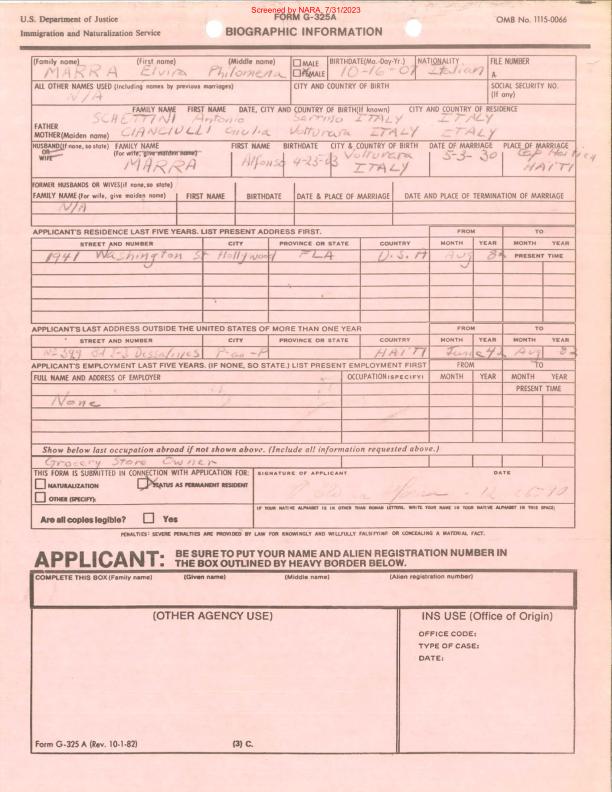 Screened by NARA, 7/31/2023
U.S. Department of Justice
Immigration and Naturalization Service
FORM G-325A
BIOGRAPHIC INFORMATION
OMB No. 1115-0066
(Family name) (First name) (Middle name) MALE FEMALE BIRTHDATE(Mo.-Day-Yr.) NATIONALITY FILE NUMBER
MARRA Elvira Philomena 10-16-07 Italian A.
ALL OTHER NAMES USED (Including names by previous marriages) CITY AND COUNTRY OF BIRTH SOCIAL SECURITY NO. (If any)
N/A
FAMILY NAME FIRST NAME DATE, CITY AND COUNTRY OF BIRTH(If known) CITY AND COUNTRY OF RESIDENCE
FATHER SCHETTINI Antonio Serrino ITALY ITALY
MOTHER(Maiden name) CIANCIULLI Giulia Volturara ITALY ITALY
HUSBAND(If none, so state) OR WIFE FAMILY NAME (For wife, give maiden name) FIRST NAME BIRTHDATE CITY & COUNTRY OF BIRTH DATE OF MARRIAGE PLACE OF MARRIAGE
MARRA Alfonso 4-23-03 Volturara ITALY 5-3-30 Cap Haitien HAITI
FORMER HUSBANDS OR WIVES(if none, so state)
FAMILY NAME (For wife, give maiden name) FIRST NAME BIRTHDATE DATE & PLACE OF MARRIAGE DATE AND PLACE OF TERMINATION OF MARRIAGE
N/A
APPLICANT'S RESIDENCE LAST FIVE YEARS. LIST PRESENT ADDRESS FIRST. FROM TO
STREET AND NUMBER CITY PROVINCE OR STATE COUNTRY MONTH YEAR MONTH YEAR
1941 Washington St Hollywood FLA U.S.A Aug PRESENT TIME
APPLICANT'S LAST ADDRESS OUTSIDE THE UNITED STATES OF MORE THAN ONE YEAR FROM TO
STREET AND NUMBER CITY PROVINCE OR STATE COUNTRY MONTH YEAR MONTH YEAR
Dessalines P-au-P HAITI June Aug
APPLICANT'S EMPLOYMENT LAST FIVE YEARS. (IF NONE, SO STATE.) LIST PRESENT EMPLOYMENT FIRST FROM TO
FULL NAME AND ADDRESS OF EMPLOYER OCCUPATION(SPECIFY) MONTH YEAR MONTH YEAR
PRESENT TIME
None
Show below last occupation abroad if not shown above. (Include all information requested above.)
Grocery Store Owner
THIS FORM IS SUBMITTED IN CONNECTION WITH APPLICATION FOR: SIGNATURE OF APPLICANT DATE
NATURALIZATION STATUS AS PERMANENT RESIDENT
OTHER (SPECIFY):
IF YOUR NATIVE ALPHABET IS IN OTHER THAN ROMAN LETTERS, WRITE YOUR NAME IN YOUR NATIVE ALPHABET IN THIS SPACE:
Are all copies legible? Yes
PENALTIES: SEVERE PENALTIES ARE PROVIDED BY LAW FOR KNOWINGLY AND WILLFULLY FALSIFYING OR CONCEALING A MATERIAL FACT.
APPLICANT: BE SURE TO PUT YOUR NAME AND ALIEN REGISTRATION NUMBER IN
THE BOX OUTLINED BY HEAVY BORDER BELOW.
COMPLETE THIS BOX (Family name) (Given name) (Middle name) (Alien registration number)
(OTHER AGENCY USE) INS USE (Office of Origin)
OFFICE CODE:
TYPE OF CASE:
DATE:
Form G-325 A (Rev. 10-1-82) (3) C.